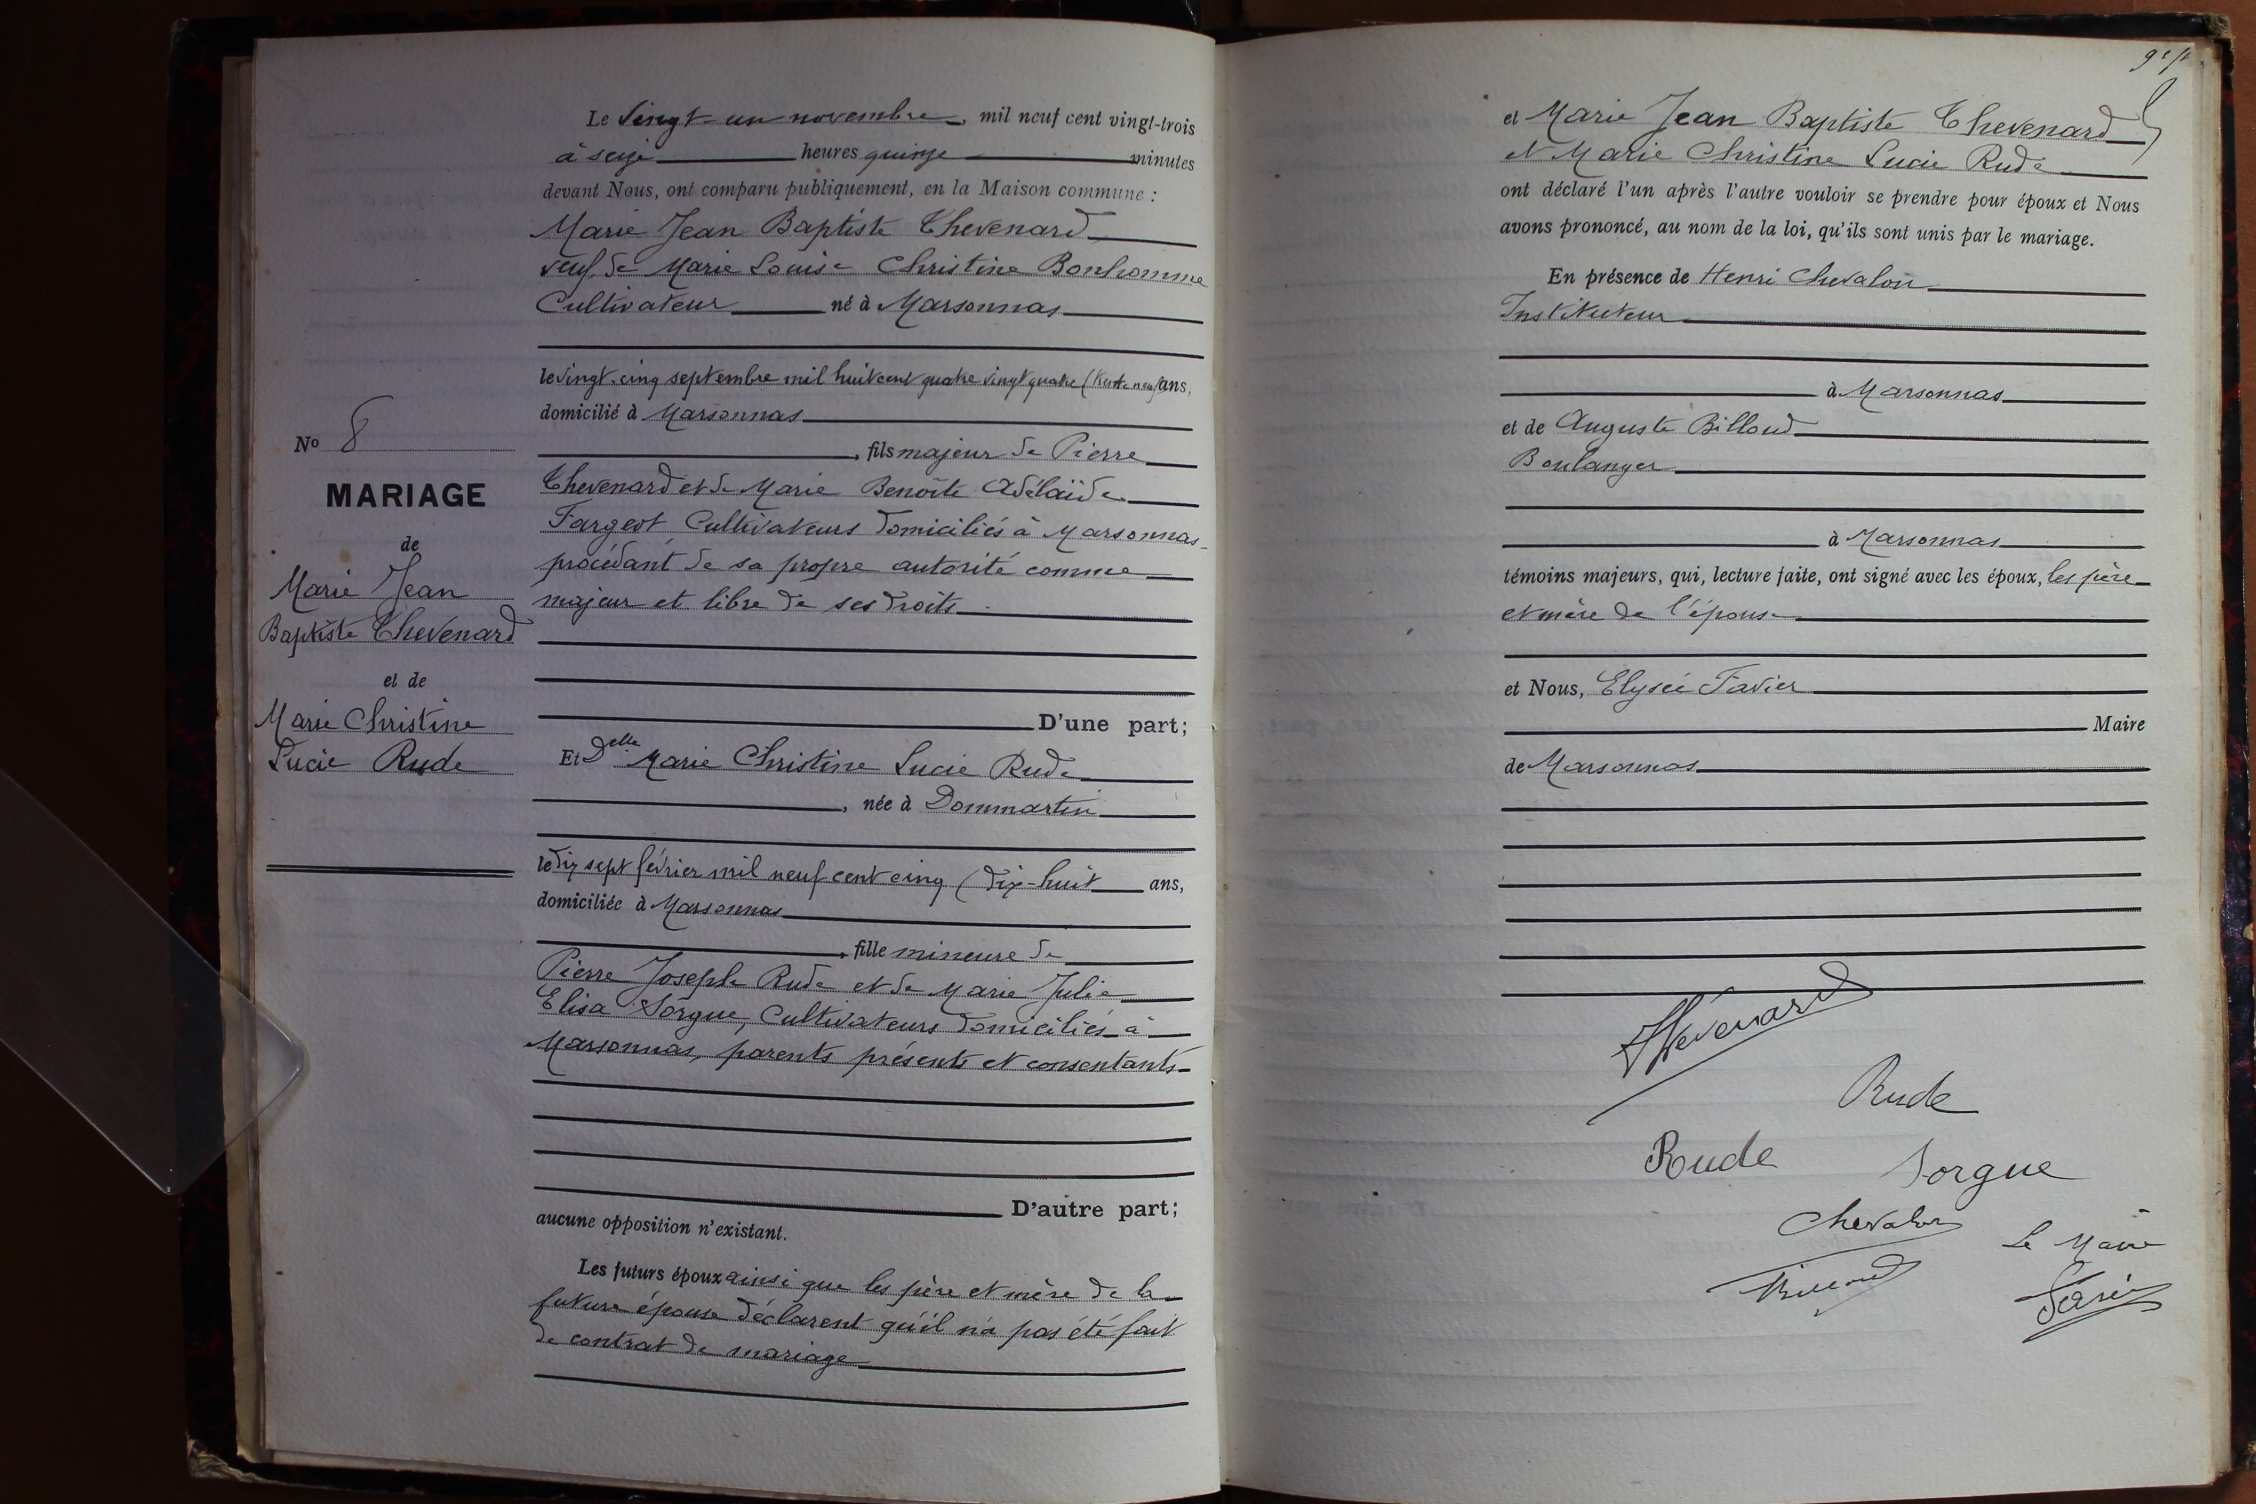 Le Vingt-un novembre, mil neuf cent vingt-trois
à seize heures quinze minutes
devant Nous, ont comparu publiquement, en la Maison commune :
Marie Jean Baptiste Thevenard
veuf de Marie Louise Christine Bonhomme
Cultivateur né à Marsonnas
le vingt-cinq septembre mil huit cent quatre vingt quatre (trente neuf) ans,
domicilié à Marsonnas
N° 8
, fils majeur de Pierre
MARIAGE
Thevenard et de Marie Benoîte Adélaïde
de
Fargeot Cultivateurs domiciliés à Marsonnas
Marie Jean
procédant de sa propre autorité comme
Baptiste Thevenard
majeur et libre de ses droits
et de
Marie Christine
D'une part;
Lucie Rude
Et Delle Marie Christine Lucie Rude
, née à Dommartin
le dix sept février mil neuf cent cinq (dix-huit ans,
domiciliée à Marsonnas
, fille mineure de
Pierre Joseph Rude et de Marie Julie
Elisa Sorgue, Cultivateurs domiciliés à
Marsonnas, parents présents et consentants
D'autre part;
aucune opposition n'existant.
Les futurs époux ainsi que les père et mère de la
future épouse déclarent qu'il n'a pas été fait
de contrat de mariage
et Marie Jean Baptiste Thevenard
et Marie Christine Lucie Rude
ont déclaré l'un après l'autre vouloir se prendre pour époux et Nous
avons prononcé, au nom de la loi, qu'ils sont unis par le mariage.
En présence de Henri Chevalon
Instituteur
à Marsonnas
et de Auguste Billoud
Boulanger
à Marsonnas
témoins majeurs, qui, lecture faite, ont signé avec les époux, les père
et mère de l'épouse
et Nous, Elysée Favier
Maire
de Marsonnas
Thévenard
Rude
Rude Sorgue
Chevalon
Le Maire
Billoud
Favier